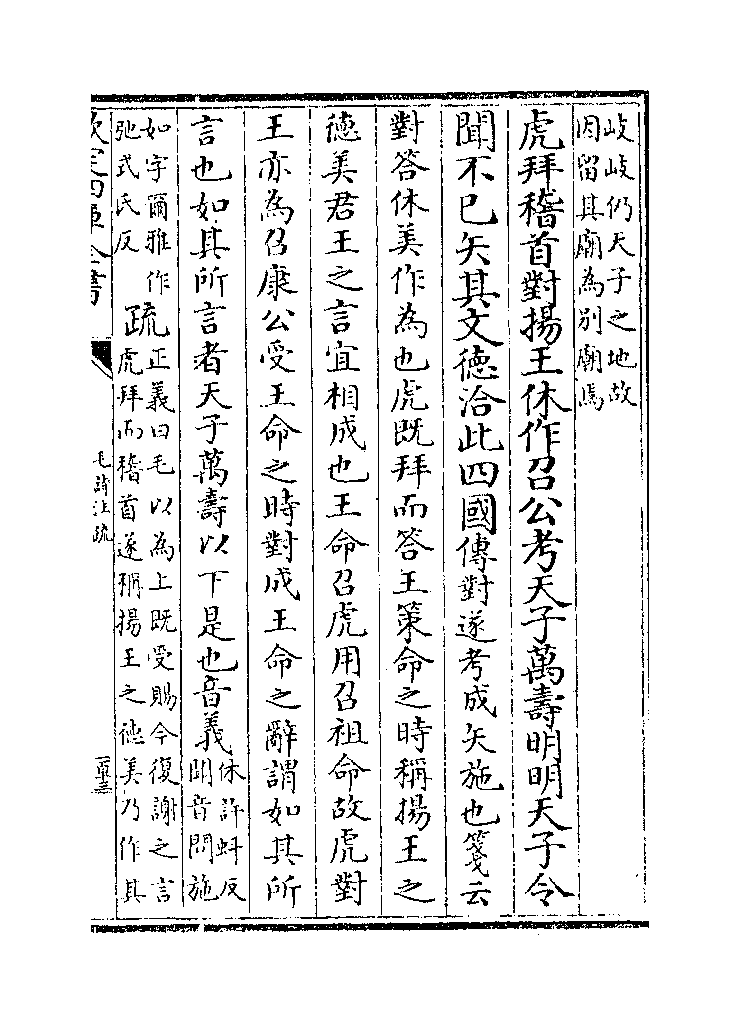 岐岐仍天子之地故
因留其廟為别廟焉
虎拜稽首對揚王休作召公考天子萬壽明明天子令
聞不已矢其文德洽此四國傳對遂考成矢施也箋云
對答休美作為也虎既拜而答王策命之時稱揚王之
德美君王之言宜相成也王命召虎用召祖命故虎對
王亦為召康公受王命之時對成王命之辭謂如其所
言也如其所言者天子萬壽以下是也音義
休許蚪反
聞音問施
如字爾雅作
弛式氏反
疏
正義曰毛以為上既受賜今復謝之言
虎拜而稽首遂稱揚王之德美乃作其
欽定四庫全書
毛詩注疏